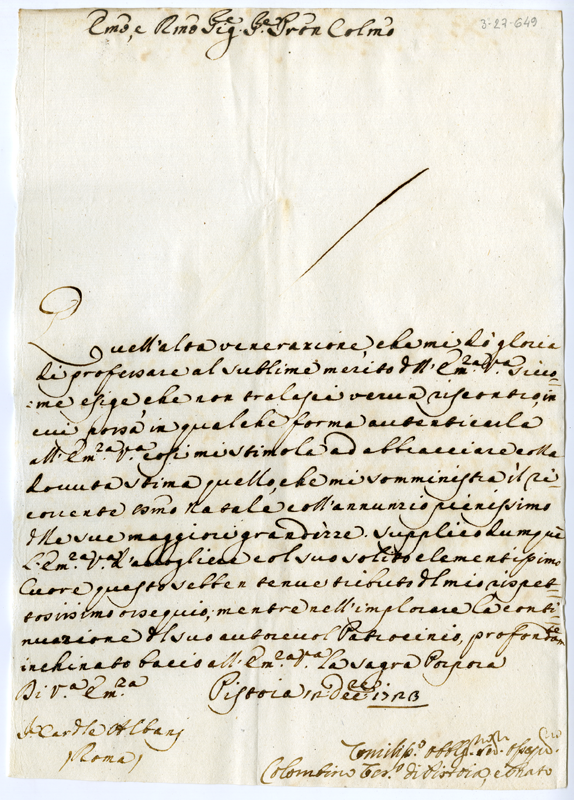 3-27-649
Emo, e Rmo Sig.re Pron Colmo
Quell'alta venerazione, che mi dò gloria
di professare al sublime merito dell'Em.za V.ra sicco=
=me esige che non tralasci verun riscontro, in
cui possa in qualche forma autenticarla
all'Em.za V.ra così mi stimola ad abbracciare colla
dovuta stima quello, che mi somministra il ri
corrente SSmo Natale coll'annunzio pienissimo
delle sue maggiori grandezze. Supplico dunque
l'Em.za V.ra d'accogliere col suo solito clementissimo
Cuore questo sebben tenue tributo del mio rispet=
tosissimo ossequio, mentre nell'implorare la conti=
nuazione del suo autorevol Patrocinio, profondam.te
inchinato bacio all'Em.za V.ra la sagra Porpora
Di V.a Em.za Pistoia 12 Dec.re 1723
Sr Cardle Albani
(Roma)
Umilis.o
Colombino di Pistoia, e Prato